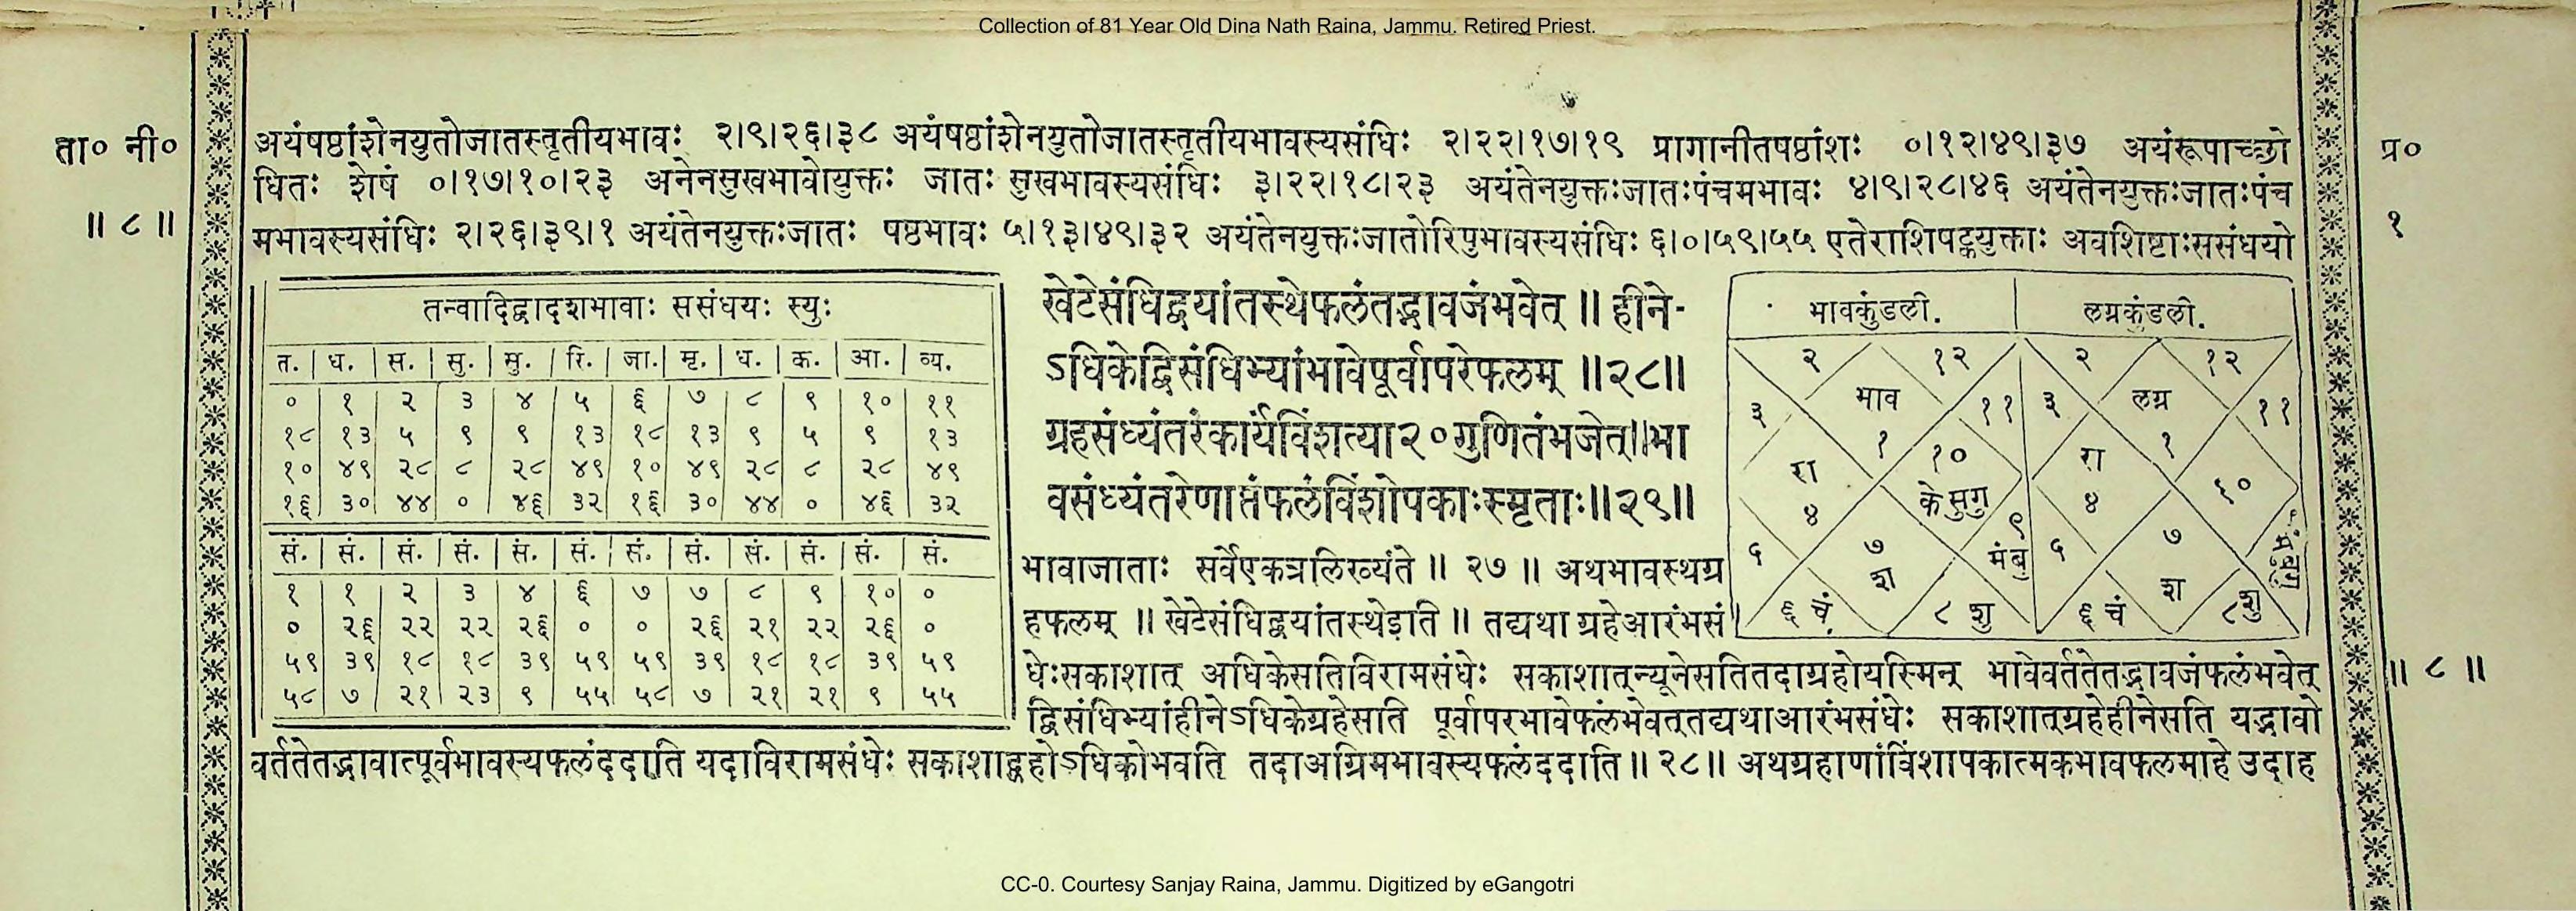 Collection of 81 Year Old Dina Nath Raina, Jammu. Retired Priest.
ता० नी०
॥ ८ ॥
अयंषष्ठांशेनयुतोजातस्तृतीयभावः २।९।२६।३८ अयंषष्ठांशेनयुतोजातस्तृतीयभावस्यसंधिः २।२२।१७।१९ प्रागानीतषष्ठांशः ०।१२।४९।३७ अयंरूपाच्छो
धितः शेषं ०।१७।१०।२३ अनेनसुखभावोयुक्तः जातः सुखभावस्यसंधिः ३।२२।१८।२३ अयंतेनयुक्तःजातःपंचमभावः ४।९।२८।४६ अयंतेनयुक्तःजातःपंच
मभावस्यसंधिः २।२६।३९।१ अयंतेनयुक्तःजातः षष्ठभावः ५।१३।४९।३२ अयंतेनयुक्तःजातोरिपुभावस्यसंधिः ६।०।५९।५५ एतेराशिषट्कयुक्ताः अवशिष्टाःससंधयो
प्र०
१
तन्वादिद्वादशभावाः ससंधयः स्युः
त. ध. स. सु. सु. रि. जा. मृ. ध. क. आ. व्य.
० १ २ ३ ४ ५ ६ ७ ८ ९ १० ११
१८ १३ ५ ९ ९ १३ १८ १३ ९ ५ ९ १३
१० ४९ २८ ८ २८ ४९ १० ४९ २८ ८ २८ ४९
१६ ३० ४४ ० ४६ ३२ १६ ३० ४४ ० ४६ ३२
सं. सं. सं. सं. सं. सं. सं. सं. सं. सं. सं. सं.
१ १ २ ३ ४ ६ ७ ७ ८ ९ १० ०
० २६ २२ २२ २६ ० ० २६ २१ २२ २६ ०
५९ ३९ १८ १८ ३९ ५९ ५९ ३९ १८ १८ ३९ ५९
५८ ७ २१ २३ ९ ५५ ५८ ७ २१ २१ ९ ५५
खेटेसंधिद्वयांतस्थेफलंतद्भावजंभवेत् ॥ हीने-
ऽधिकेद्विसंधिभ्यांभावेपूर्वापरेफलम् ॥२८॥
ग्रहसंध्यंतरंकार्यंविंशत्या२०गुणितंभजेत्॥भा
वसंध्यंतरेणाप्तंफलंविंशोपकाःस्मृताः॥२९॥
भावकुंडली.
२ १२
भाव
३ ११
१
रा १०
४ केसुगु
९
५ ७ मंबु
श
६ चं ८ शु
लग्नकुंडली.
२ १२
लग्न
३ ११
१
रा
४ १०
५ ७
श
६ चं ८शु
भावाजाताः सर्वेएकत्रलिख्यंते ॥ २७ ॥ अथभावस्थग्र
हफलम् ॥ खेटेसंधिद्वयांतस्थेइति ॥ तद्यथा ग्रहेआरंभसं
धेःसकाशात् अधिकेसतिविरामसंधेः सकाशात्न्यूनेसतितदाग्रहोयस्मिन् भावेवर्ततेतद्भावजंफलंभवेत्
द्विसंधिभ्यांहीनेऽधिकेग्रहेसति पूर्वापरभावेफलंभवेत्तद्यथाआरंभसंधेः सकाशात्ग्रहेहीनेसति यद्भावो
वर्ततेतद्भावात्पूर्वभावस्यफलंददाति यदाविरामसंधेः सकाशाद्ग्रहोऽधिकोभवति तदाअग्रिमभावस्यफलंददाति ॥ २८ ॥ अथग्रहाणांविंशापकात्मकभावफलमाहे उदाह
॥ ८ ॥
CC-0. Courtesy Sanjay Raina, Jammu. Digitized by eGangotri